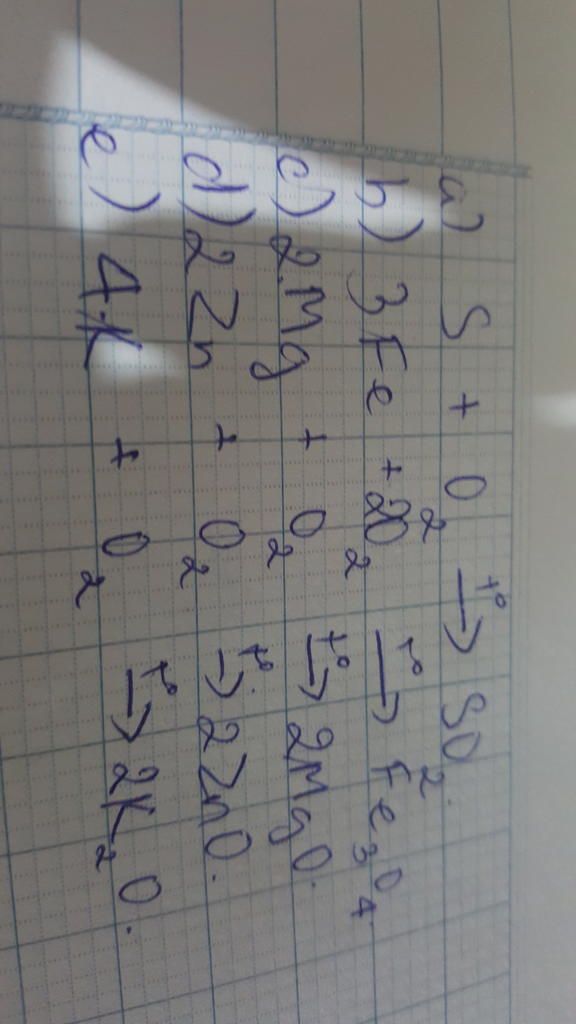 a) S + O₂ →(t°) SO₂.
b) 3Fe + 2O₂ →(t°) Fe₃O₄
c) 2Mg + O₂ →(t°) 2MgO.
d) 2Zn + O₂ →(t°) 2ZnO.
e) 4K + O₂ →(t°) 2K₂O.